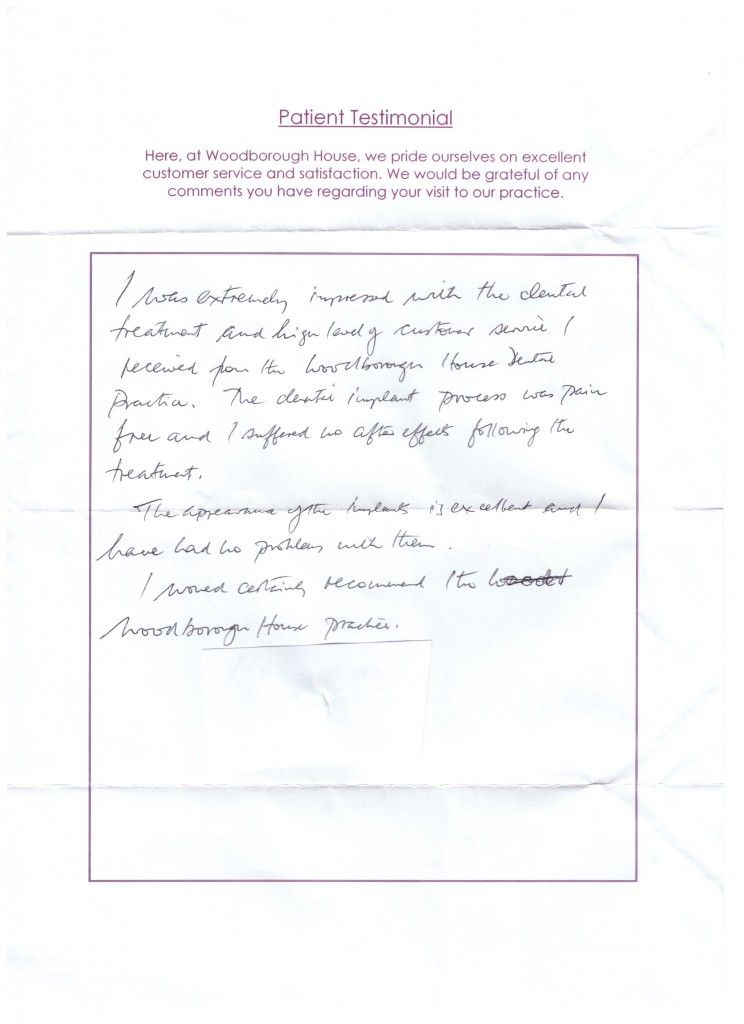 Patient Testimonial
Here, at Woodborough House, we pride ourselves on excellent
customer service and satisfaction. We would be grateful of any
comments you have regarding your visit to our practice.
I was extremely impressed with the dental
treatment and high level of customer service I
received from the Woodborough House Dental
Practice. The dental implant process was pain
free and I suffered no after effects following the
treatment.
The appearance of the implants is excellent and I
have had no problems with them.
I would certainly recommend the
Woodborough House practice.